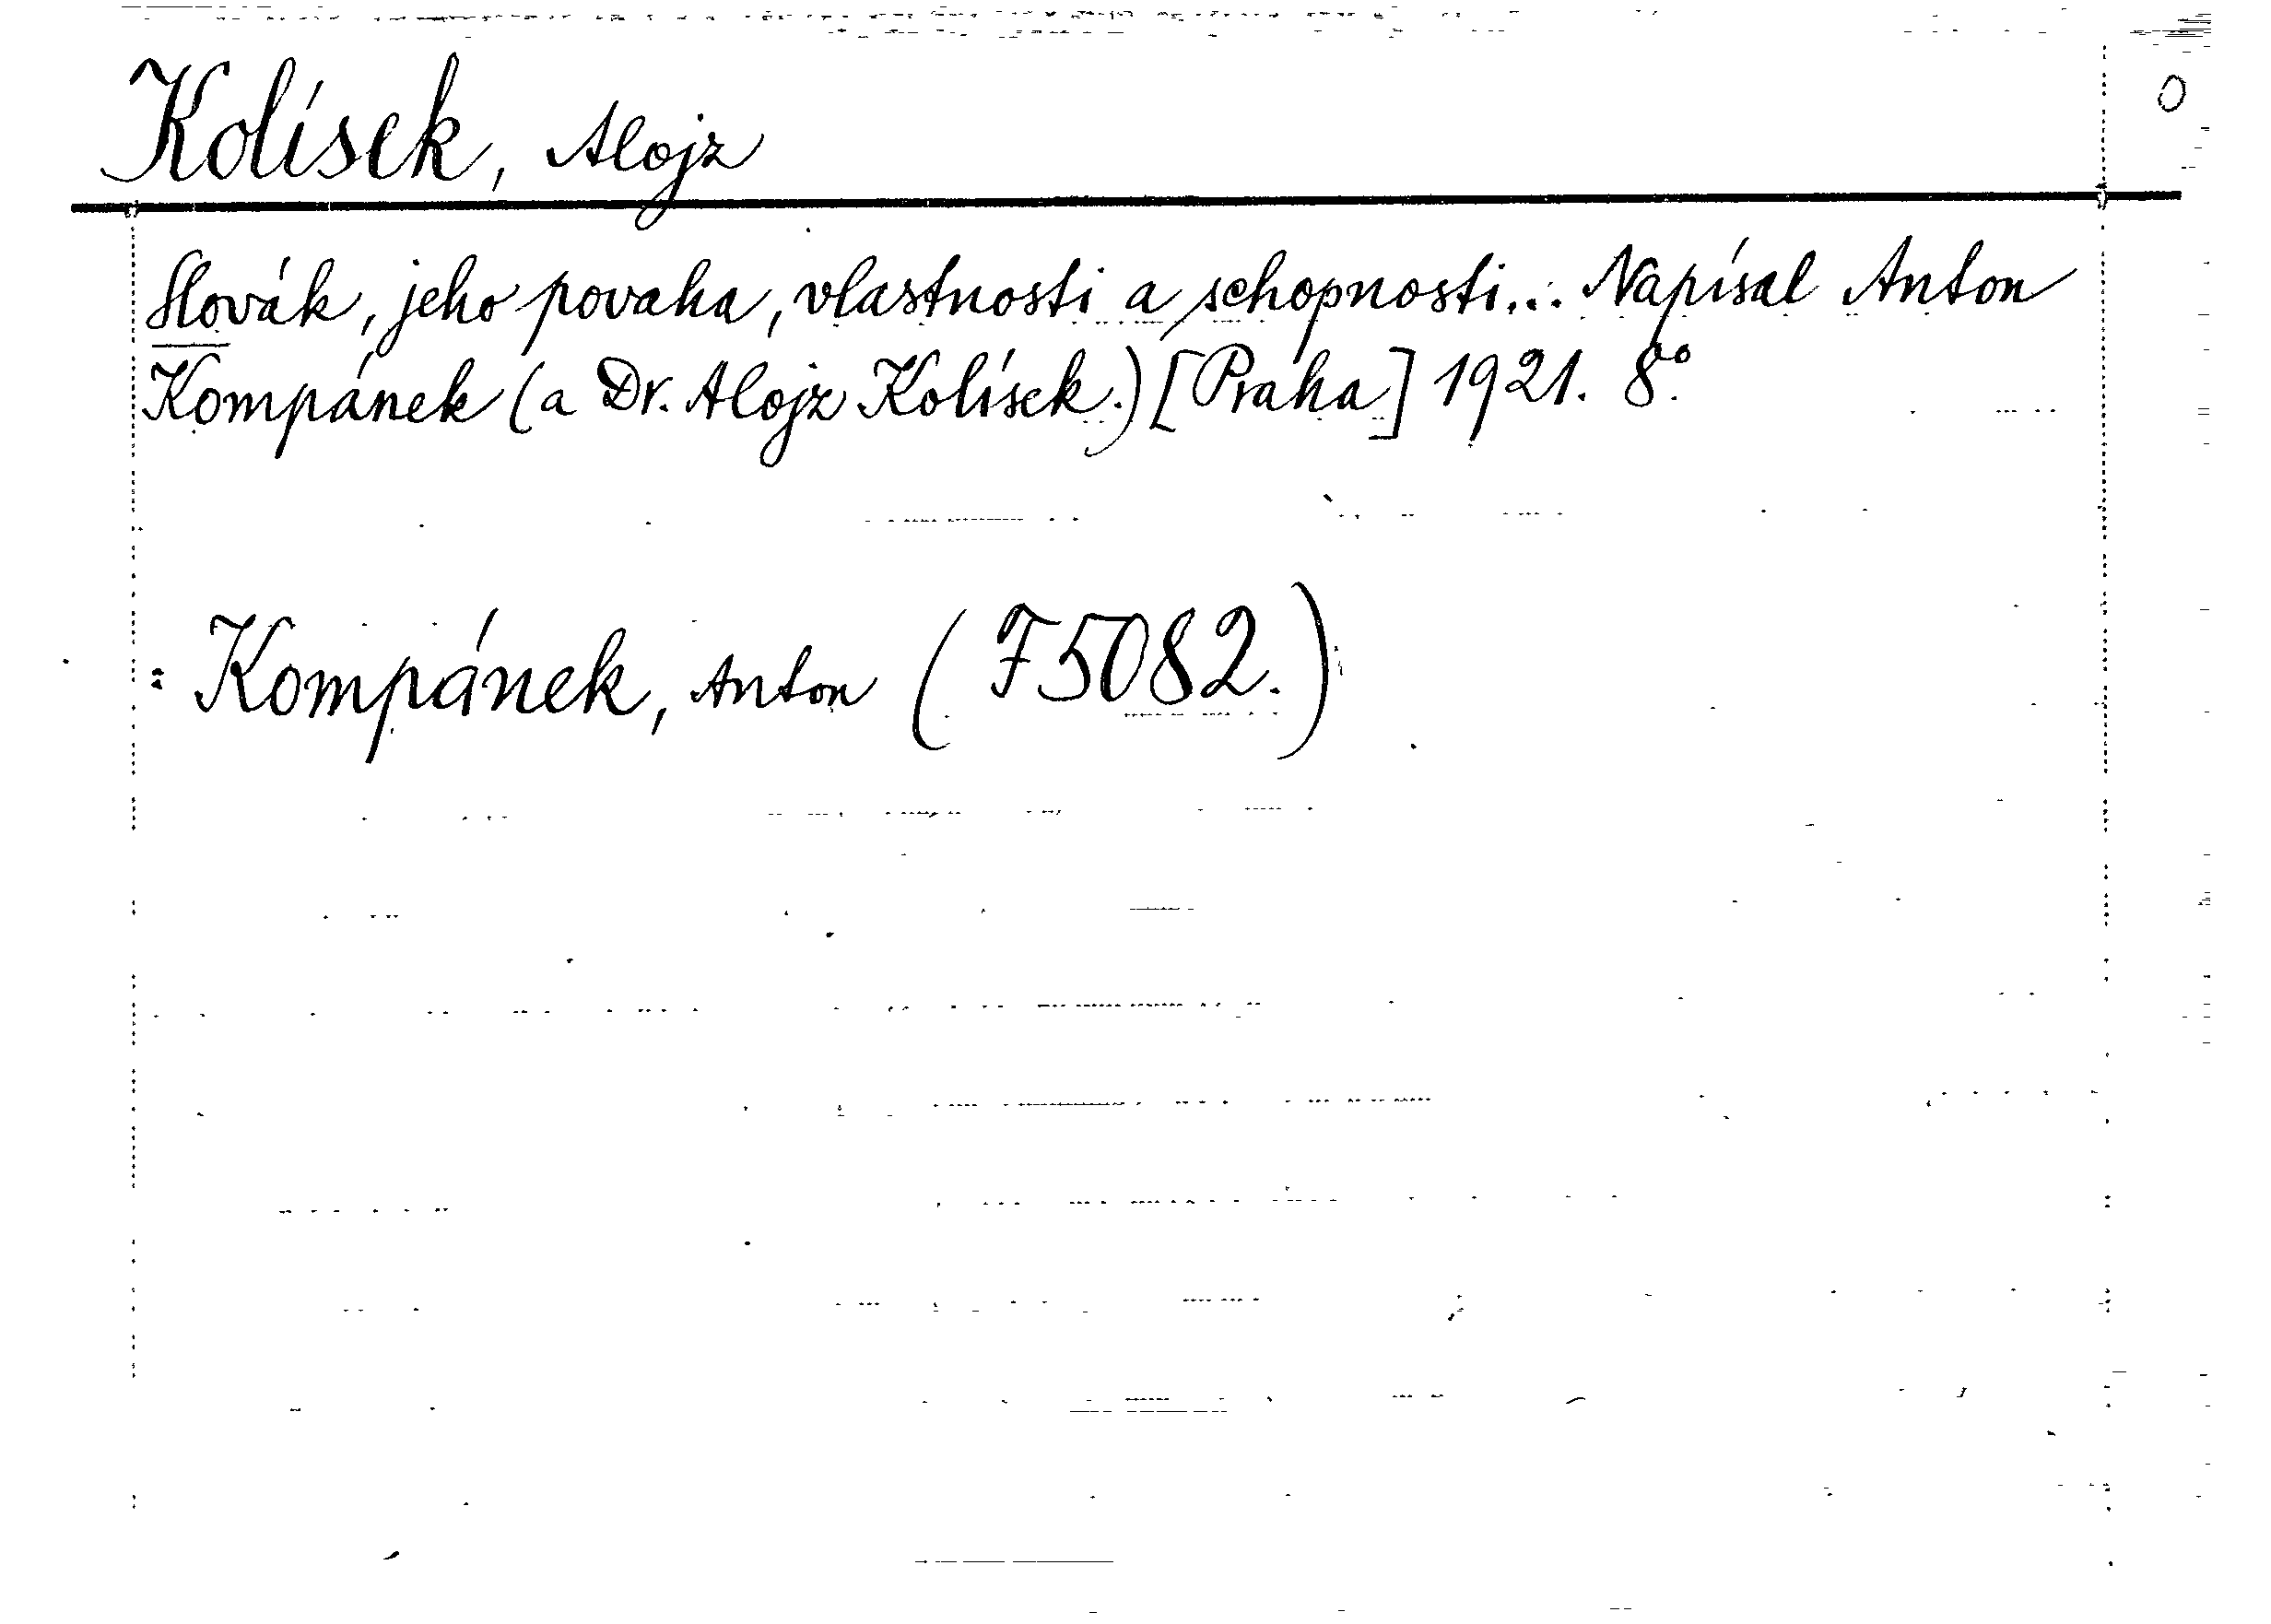 Kolísek, Alojz
O
Slovák, jeho povaha, vlastnosti a schopnosti... Napísal Anton
Kompánek (a Dr. Alojz Kolísek.) [Praha] 1921. 8°.
: Kompánek, Anton (F5082.)